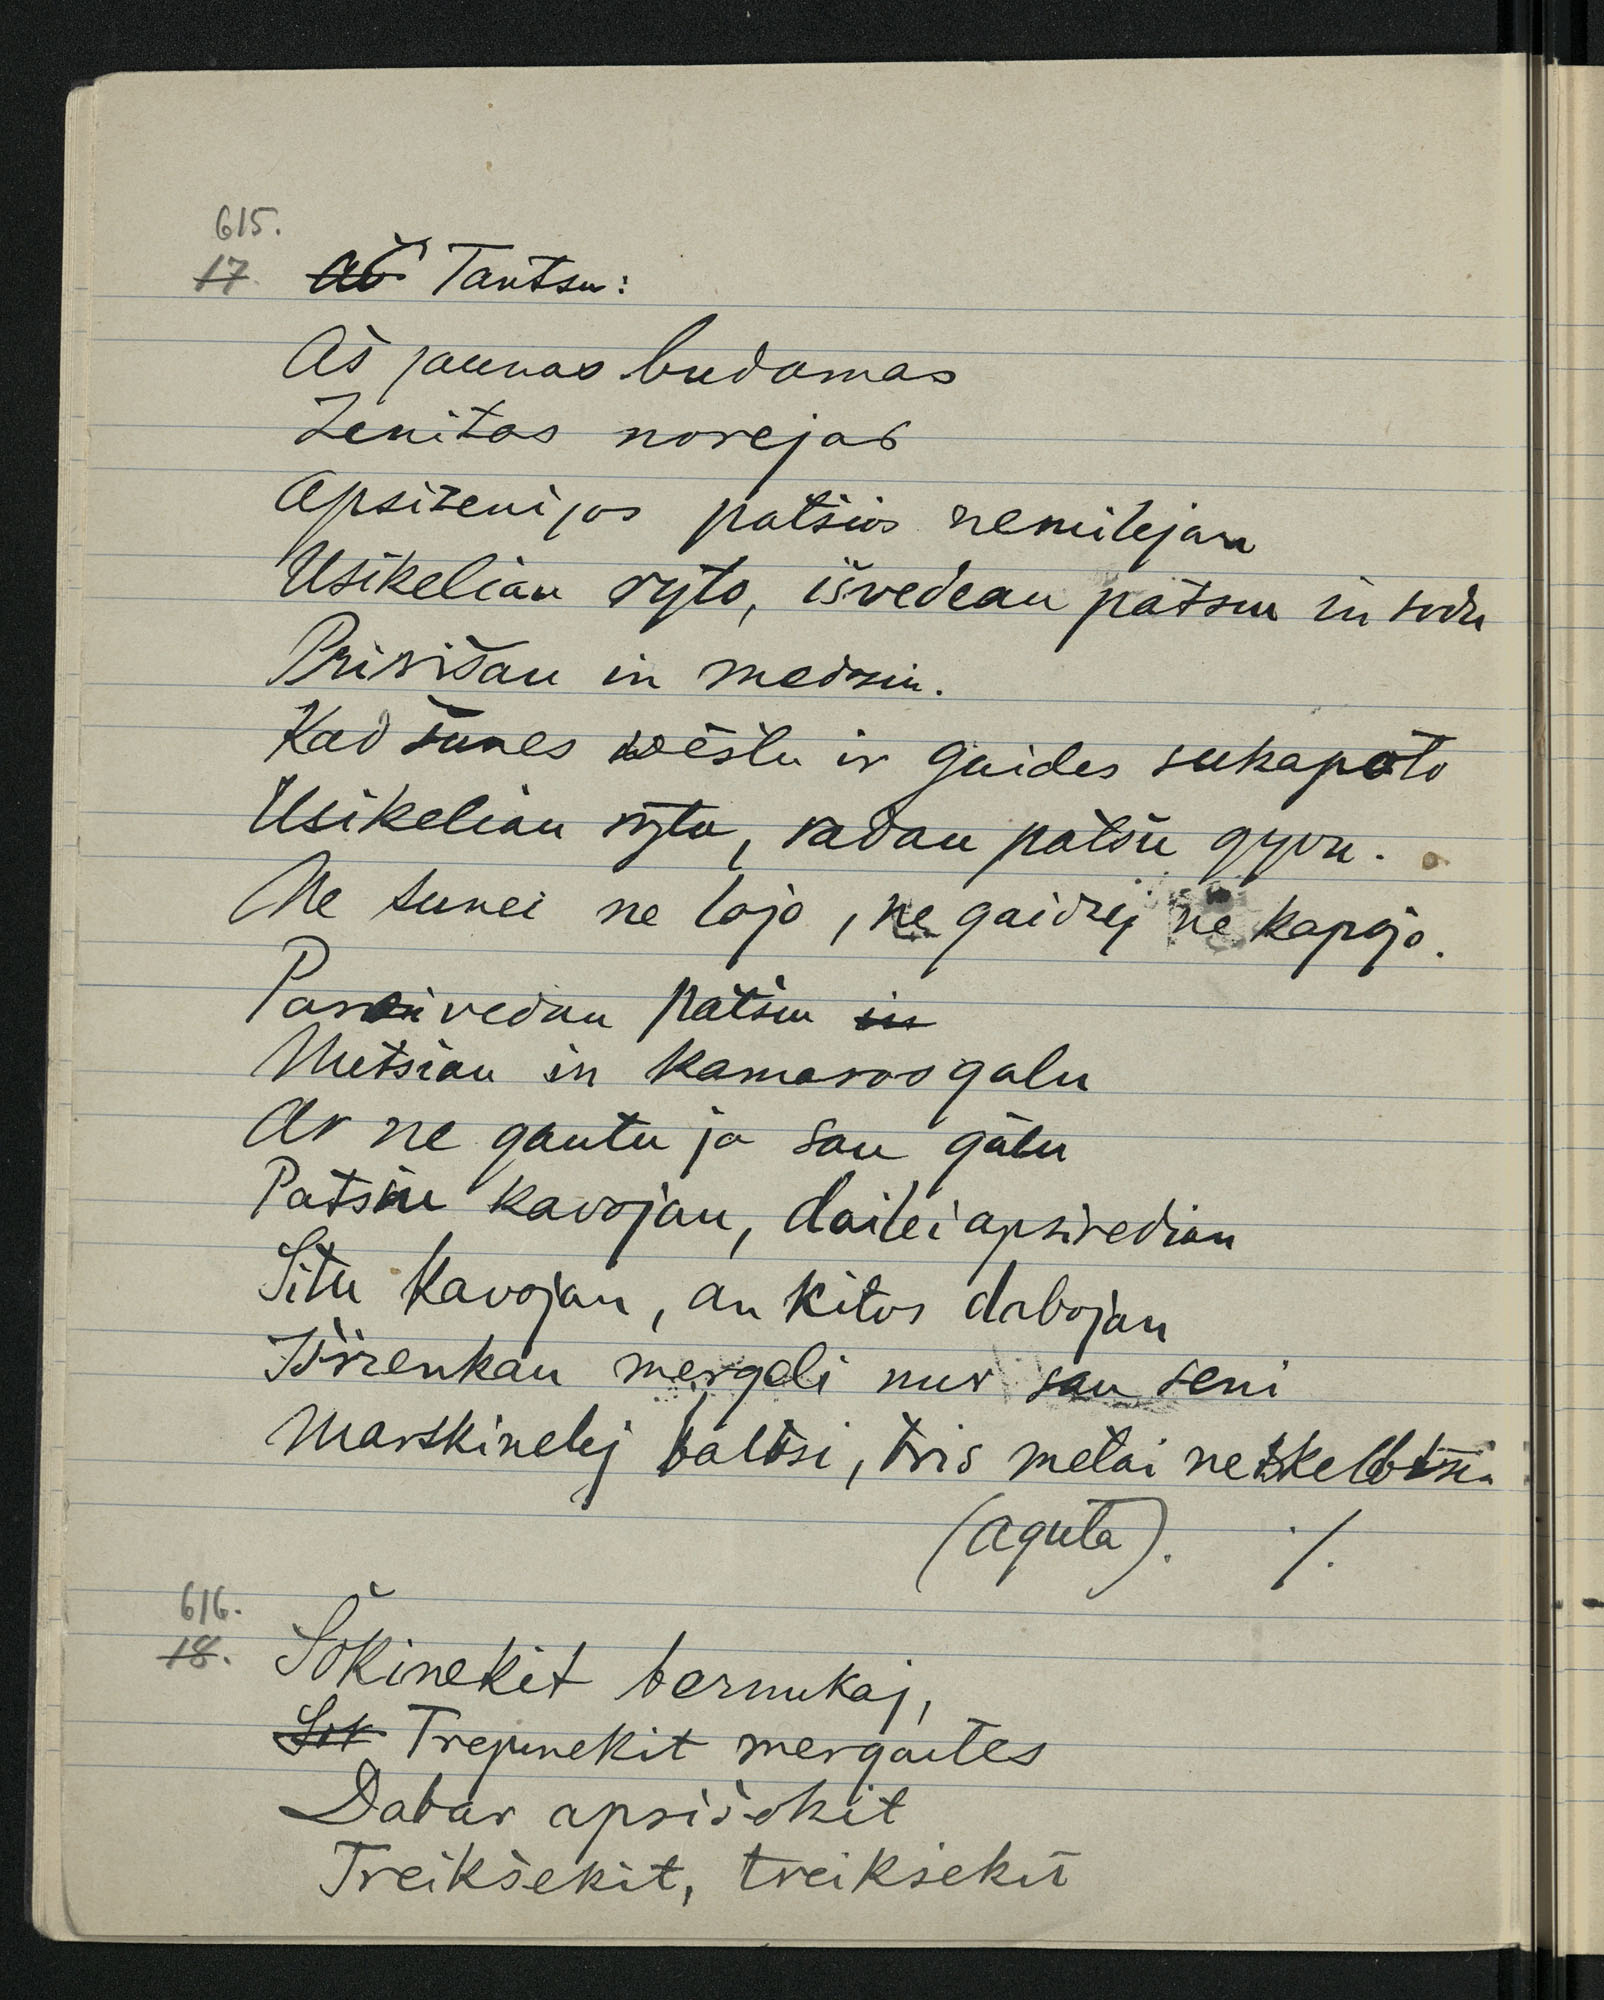 615.
17. Aš Tantsu:
Aš jaunas budamas
Zenitas norejas
Apsizenijos patšios nemilejau
Usikeliau ryto, išvedeau patsiu in sodu
Pririšau in medziu.
Kad šunes ēstu ir gaides sukapoto
Usikeliau ryto, radau patšiu gyvu.
Ne sunei ne lojo, ne gaidzej ne kapojo.
Parsivedau patšiu in
Metsiau in kamaros galu
Ar ne gautu ja sau galu
Patsiu kavojau, dailei apsirediau
Šitu kavojau, an kitos dabojau
Išsirenkau mergeli nur sau seni
Marskinelej baltsi, tris metai neskelbtsia
(Aguta). ./.
616.
18. Šokinekit bernukaj,
Šok Trepinekit mergaites
Dabar apsišokit
Treiksekit, treiksekit